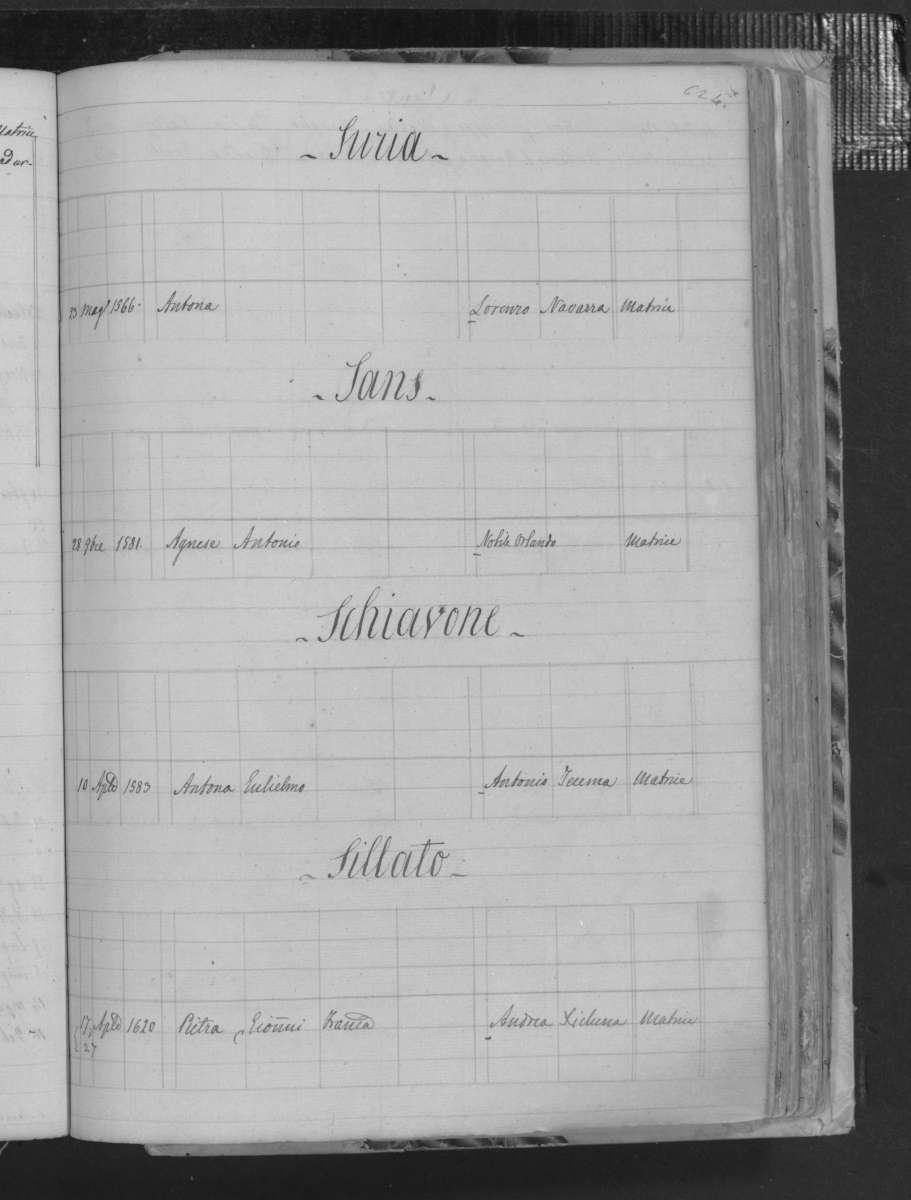 624.
- Suria -
23 Magº 1566. Antona Lorenzo Navarra Matrice
- Sans -
28 9bre 1581. Agnese Antonio Nobile Orlando Matrice
- Schiavone -
10 Aple 1583 Antona Eulielmo Antonio Matrice
- Sillato -
17 Aple 1620 Pietra Eionni Franca Andrea Xicluna Matrice
27